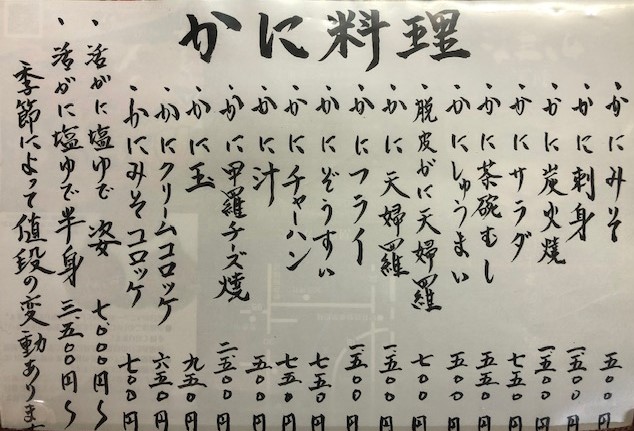 かに料理
・かにみそ 五〇〇円
・かに刺身 一五〇〇円
・かに炭火焼 一五〇〇円
・かにサラダ 七五〇円
・かに茶碗むし 五五〇円
・かにしゅうまい 五〇〇円
・脱皮がに天婦羅 七〇〇円
・かに天婦羅 一五〇〇円
・かにフライ 一五〇〇円
・かにぞうすい 七五〇円
・かにチャーハン 七五〇円
・かに汁 五〇〇円
・かに甲羅チーズ焼 二五〇〇円
・かに玉 九五〇円
・かにクリームコロッケ 六五〇円
・かにみそコロッケ 七〇〇円
・活がに塩ゆで 姿 七、〇〇〇円〜
・活がに塩ゆで半身 三五〇〇円〜
季節によって値段の変動あります